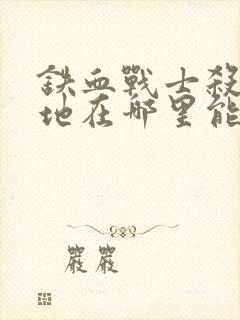 鉄血戰士殺
地在哪里能
嚴嚴